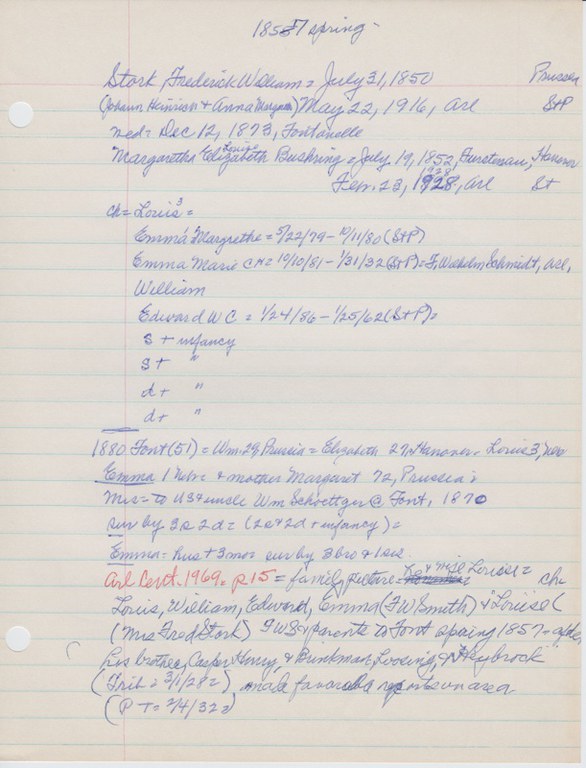 1857 spring -
Stork, Frederick William = July 31, 1850 Prussia
(Johann Heinrich + Anna Margaret) May 22, 1916, Arl St P
med = Dec 12, 1873, Fontanelle
Margaretha Elizabeth Louise Bushring = July 19, 1852, Furstenau, Hanover
1928
Feb. 23, 1928, Arl St
ch = Louis 3 =
Emma Margrethe = 5/22/79 - 10/11/80 (St P)
Emma Marie CH = 10/10/81 - 1/31/32 (St P) = F. Wilhelm Schmidt, Arl,
William
Edward W C = 1/24/86 - 1/25/62 (St P) =
s + infancy
s + "
d + "
d + "
1880 Font (51) = Wm. 29, Prussia = Elizabeth 27, Hanover - Louis 3, Neb
Emma 1 Neb = & mother Margaret 72, Prussia =
Mrs = to US & uncle Wm Schoettger @ Font, 1870
sur by 3s 2d = (2s & 2d + infancy) =
Emma = hus + 3 mos sur by 3 bro & 1 sis.
Arl Cent. 1969 = p 15 = family picture Louise = ch =
Louis, William, Edward, Emma (F W Smith) & Louise (
(Mrs Fred Stork) F W S & parents to Font spring 1857 -
his brother, Casper Henry, & Brunkman, Loosing, & Heybrock
(Trib = 3/1/28 =) made favorable reports on area
(P T = 2/4/32 =)